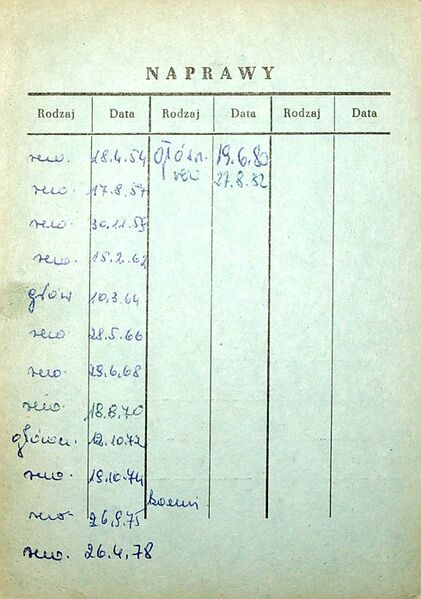 NAPRAWY
Rodzaj Data Rodzaj Data Rodzaj Data
rew. 28.4.54
rew. 17.8.57
rew. 30.11.59
rew. 15.2.62
głów 10.3.64
rew. 28.5.66
rew. 29.6.68
rew. 18.8.70
główn. 12.10.72
rew. 19.10.74
rew. 26.9.75
rew. 26.4.78
główn. 19.6.80
rew 27.8.82